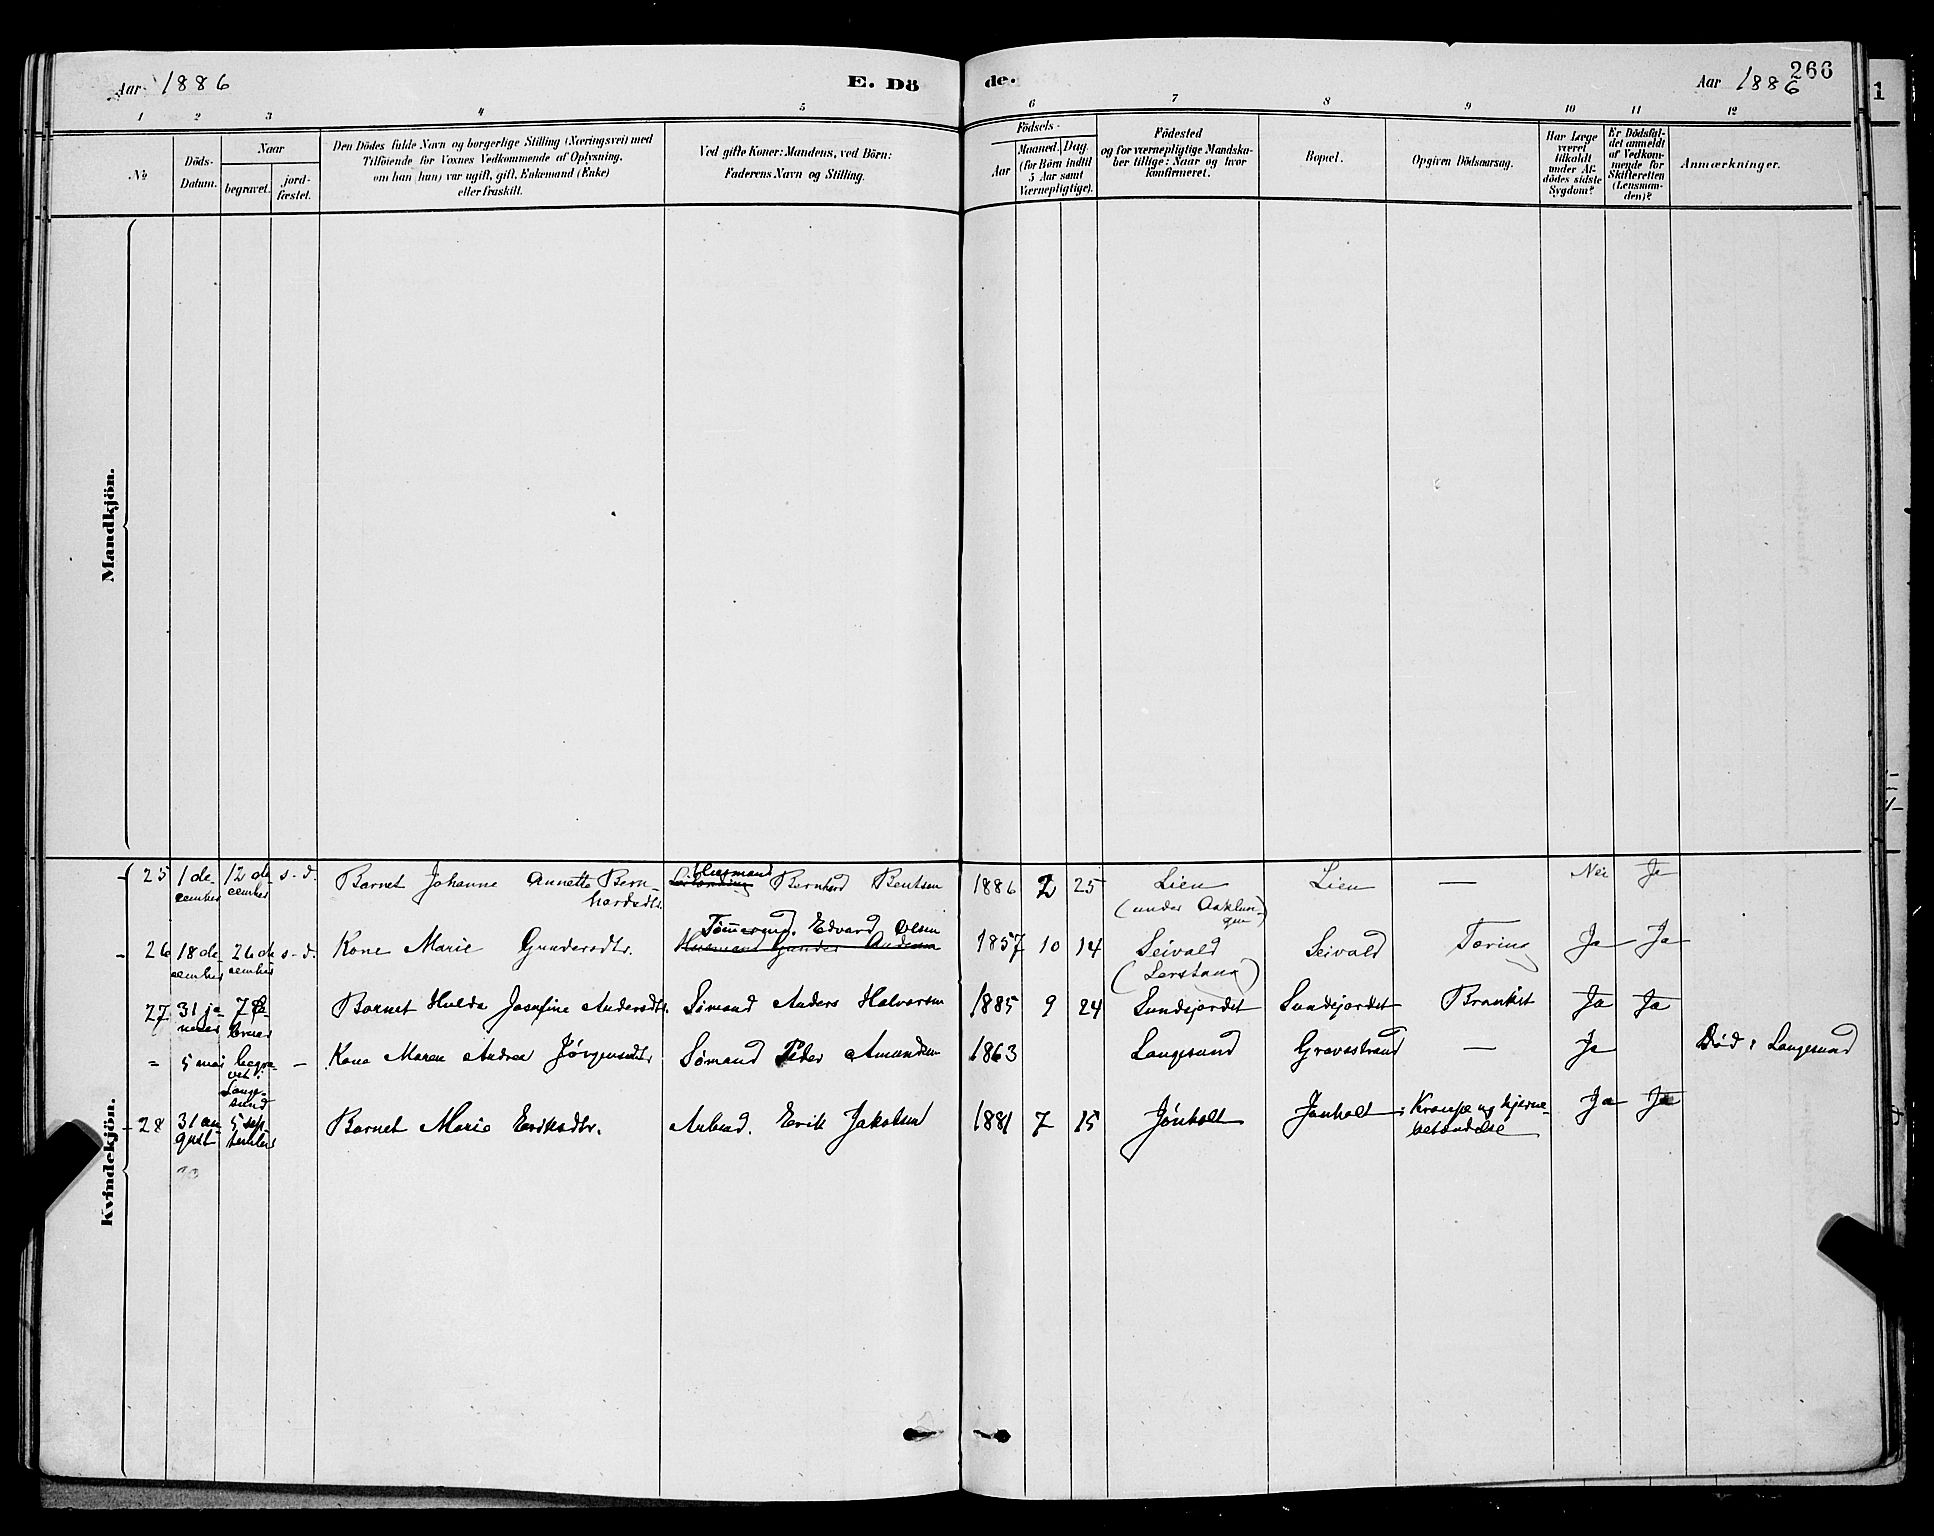 Aar 1886 E. Dö de. Aar 1886 266
1 2 3 4 5 6 7 8 9 10 11 12
No
Döds-Datum.
Naar
begravet.
jord-fæstet.
Den Dödes fulde Navn og borgerlige Stilling (Næringsvei) med
Tilföiende for Voxnes Vedkommende af Oplysning,
om han (hun) var ugift, gift, Enkemand (Enke)
eller fraskilt.
Ved gifte Koner: Mandens, ved Börn:
Faderens Navn og Stilling.
Födsels-
Aar
Maaned. Dag.
(for Börn indtil
5 Aar samt
Værnepligtige).
Födested
og for værnepligtige Mandska-
ber tillige: Naar og hvor
konfirmeret.
Bopæl.
Opgiven Dödsaarsag.
Har Læge
været
tilkaldt
under Af-
dödes sidste
Sygdom?
Er Dödsfal-
det anmeldt
af Vedkom-
mende for
Skifteretten
(Lensman-
den)?
Anmærkninger.
Mandkjön.
Kvindekjön.
25 1 de-cember 12 de-cember s. d. Barnet Johanne Annette Bern-hardsdtr. Husmand Bernhard Bentsen 1886 2 25 Lien (under Aaklun-gen) Lien — Nei Ja
26 18 de-cember 26 de-cember s. d. Kone Marie Gundersdtr. Tømmermd. Edvard Olsen
Husmand Gunder Andersen 1857 10 14 Seivald (Lerstang) Seivald Tæring Ja Ja
27 31 ja-nuar 7 Fe-bruar Barnet Hulda Josefine Andersdtr. Sømand Anders Halvorsen 1885 9 24 Sundsjordet Sundsjordet Bronkit Ja Ja
" 5 mai begra-vet i Lange-sund — Kone Maren Andrea Jørgensdtr. Sømand Peder Amundsen 1863 Langesund Gravastrand — Ja Død i Langesund
28 31 au-gust 5 sep-tember Barnet Marie Eriksdtr. Arbmd. Erik Jakobsen 1881 7 15 Jønholt Jønholt Krampe og hjerne-betændelse Ja Ja